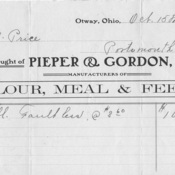 Otway, Ohio, Oct. 15
Price
Portsmouth
ought of PIEPER & GORDON,
MANUFACTURERS OF
LOUR, MEAL & FEE
bbl. Faultless, @